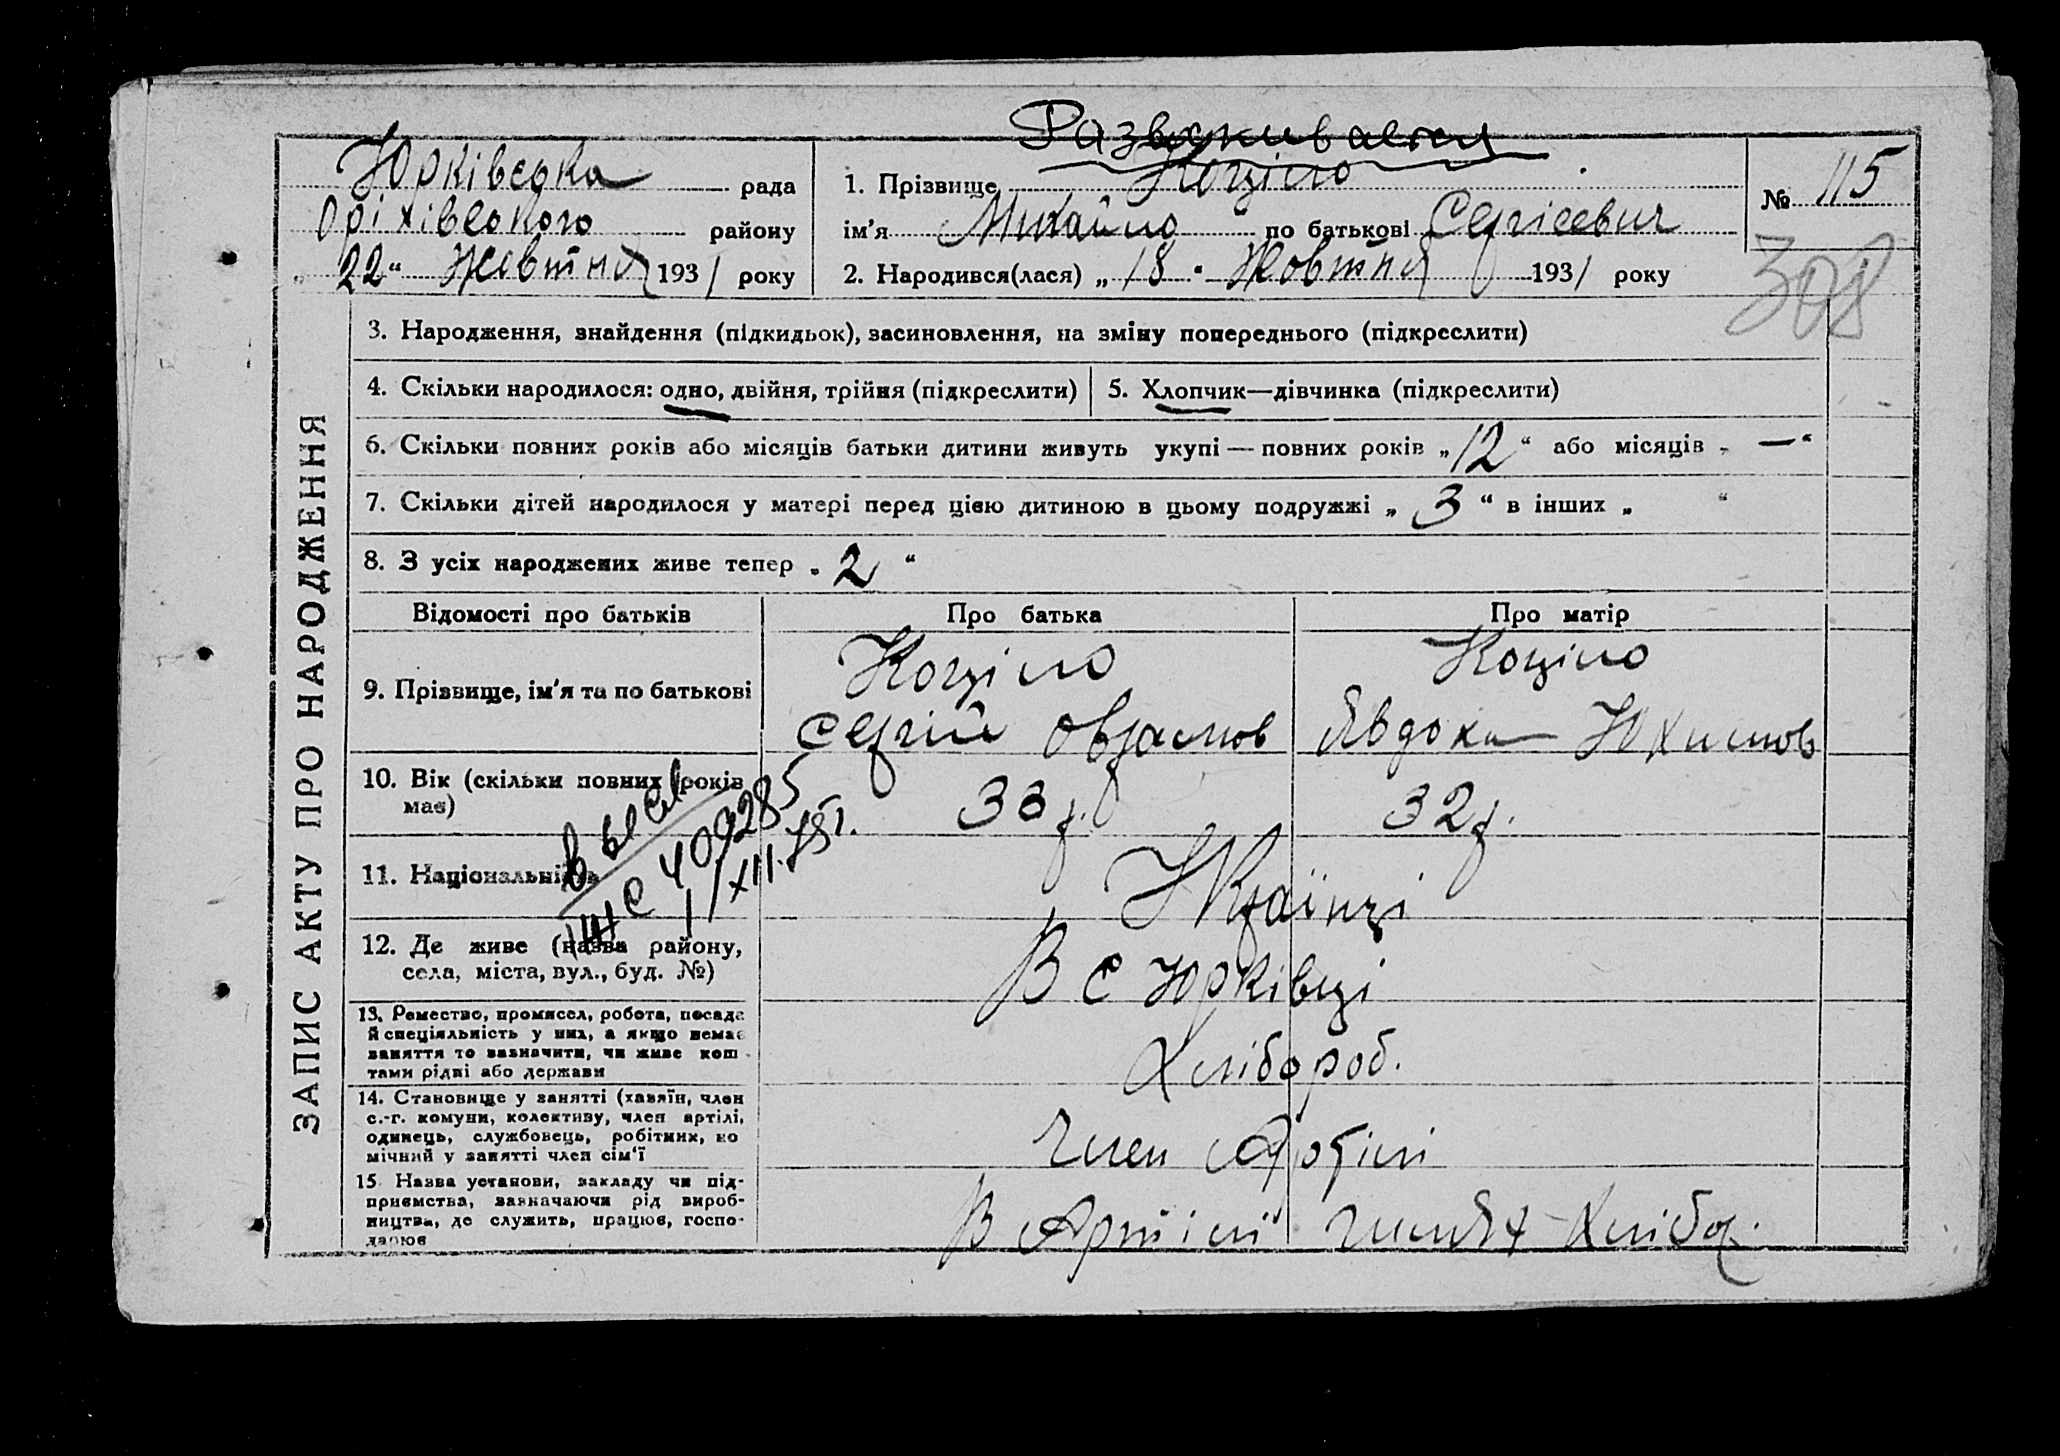 Розыскивается
Юрківська рада
Оріхівського району
„22“ Жовтня 1931 року
1. Прізвище Коціло
ім'я Михайло по батькові Сергієвич
2. Народився(лася) „18“ Жовтня 1931 року
№ 115
308
ЗАПИС АКТУ ПРО НАРОДЖЕННЯ
3. Народження, знайдення (підкидьок), засиновлення, на зміну попереднього (підкреслити)
4. Скільки народилося: одно, двійня, трійня (підкреслити)
5. Хлопчик—дівчинка (підкреслити)
6. Скільки повних років або місяців батьки дитини живуть укупі — повних років „12“ або місяців „—“
7. Скільки дітей народилося у матері перед цією дитиною в цьому подружжі „3“ в інших „ “
8. З усіх народжених живе тепер „2“
Відомості про батьків
Про батька
Про матір
9. Прізвище, ім'я та по батькові
Коціло
Сергій Оврамов
Коціло
Явдоха Юхимов
10. Вік (скільки повних років
має)
33 р.
32 р.
11. Національність
Українці
12. Де живе (назва району,
села, міста, вул., буд. №)
В с Юрківці
13. Ремество, промисел, робота, посада
й спеціяльність у них, а якщо немає
заняття то зазначити, чи живе кош-
тами рідні або держави
Хлібороб.
14. Становище у занятті (хазяїн, член
с.-г. комуни, колективу, член артілі,
одинець, службовець, робітник, по
мічний у занятті член сім'ї
Член Артілі
15. Назва установи, закладу чи під-
приємства, зазначаючи рід вироб-
ництва, де служить, працює, госпо-
дарює
В Артілі Хлібор.
409285
XII.